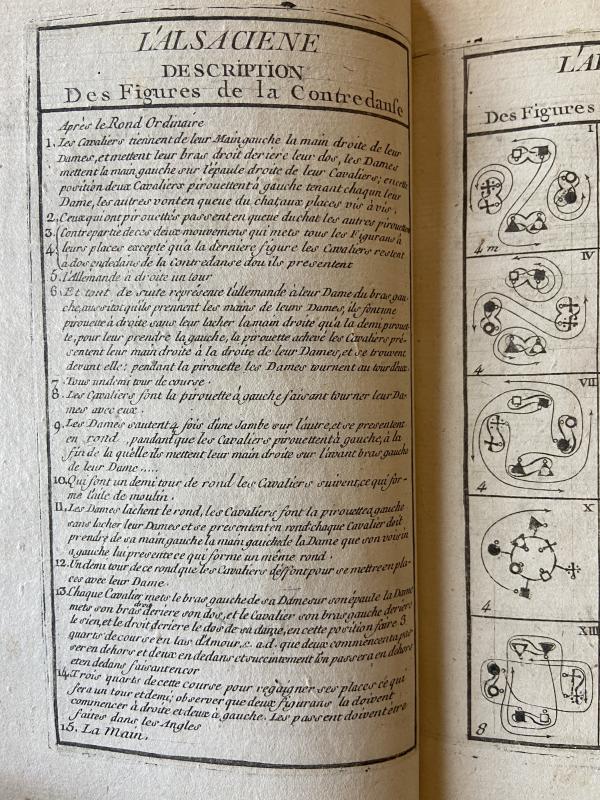 L'ALSACIENE
DESCRIPTION
Des Figures de la Contredanse
Après le Rond Ordinaire
1. Les Cavaliers tiennent de leur Main gauche la main droite de leur
Dames, et mettent leur bras droit deriere leur dos, les Dames
mettent la main gauche sur l'épaule droite de leur Cavaliers; en cette
position deux Cavaliers pirouettent à gauche tenant chaqu'un leur
Dame, les autres vont en queue du chat, aux places vis à vis.
2. Ceux qui ont pirouettés passent en queue du chat les autres pirouettent
3. Contrepartie de ces deux mouvemens qui mets tous les Figurans à
4. leurs places excepté qu'a la derniere figure les Cavaliers restent
à dos en dedans de la contredanse d'ou ils presentent
5. l'Allemande à droite un tour
6. Et tout de suite représente l'allemande à leur Dame du bras gau-
che, aussitot qu'ils prennent les mains de leurs Dames, ils font une
pirouette à droite sans leur lacher la main droite qu'a la demi pirouet-
te, pour leur prendre la gauche, la pirouette achevé les Cavaliers pré-
sentent leur main droite à la droite de leur Dames, et se trouvent
devant elle; pendant la pirouette les Dames tournent au tour d'eux.
7. Tous un demi tour de course.
8. Les Cavaliers font la pirouette à gauche faisant tourner leur Da-
mes avec eux.
9. Les Dames sautent 4 fois d'une Jambe sur l'autre, et se presentent
en rond, pandant que les Cavaliers pirouettent à gauche, à la
fin de la quelle ils mettent leur main droite sur l'avant bras gauche
de leur Dame.....
10. Qui font un demi tour de rond les Cavaliers suivent, ce qui for-
me l'aile de moulin.
11. Les Dames lachent le rond, les Cavaliers font la pirouette à gauche
sans lacher leur Dames et se presentent en rond chaque Cavalier doit
prendre de sa main gauche la main gauche de la Dame que son voisin
a gauche lui presente ce qui forme un même rond.
12. Un demi tour de ce rond que les Cavaliers deffont pour se mettre en pla-
ces avec leur Dame.
13. Chaque Cavalier mets le bras gauche de sa Dame sur son épaule la Dame
mets son bras droit deriere son dos, et le Cavalier son bras gauche deriere
le sien, et le droit deriere le dos de sa dame, en cette position faire 3
quarts de course en las d'Amour, c. a. d. que deux commencent a pas-
ser en dehors et deux en dedans et succintement l'on passera en dehors
et en dedans faisant encor
14. Trois quarts de cette course pour regaigner ses places ce qui
fera un tour et demi; observer que deux figurans la doivent
commencer à droite et deux à gauche. Les passent doivent etre
faites dans les Angles
15. La Main.
L'AL
Des Figures
I
4 m
IV
4
VII
4
X
4
XIII
8